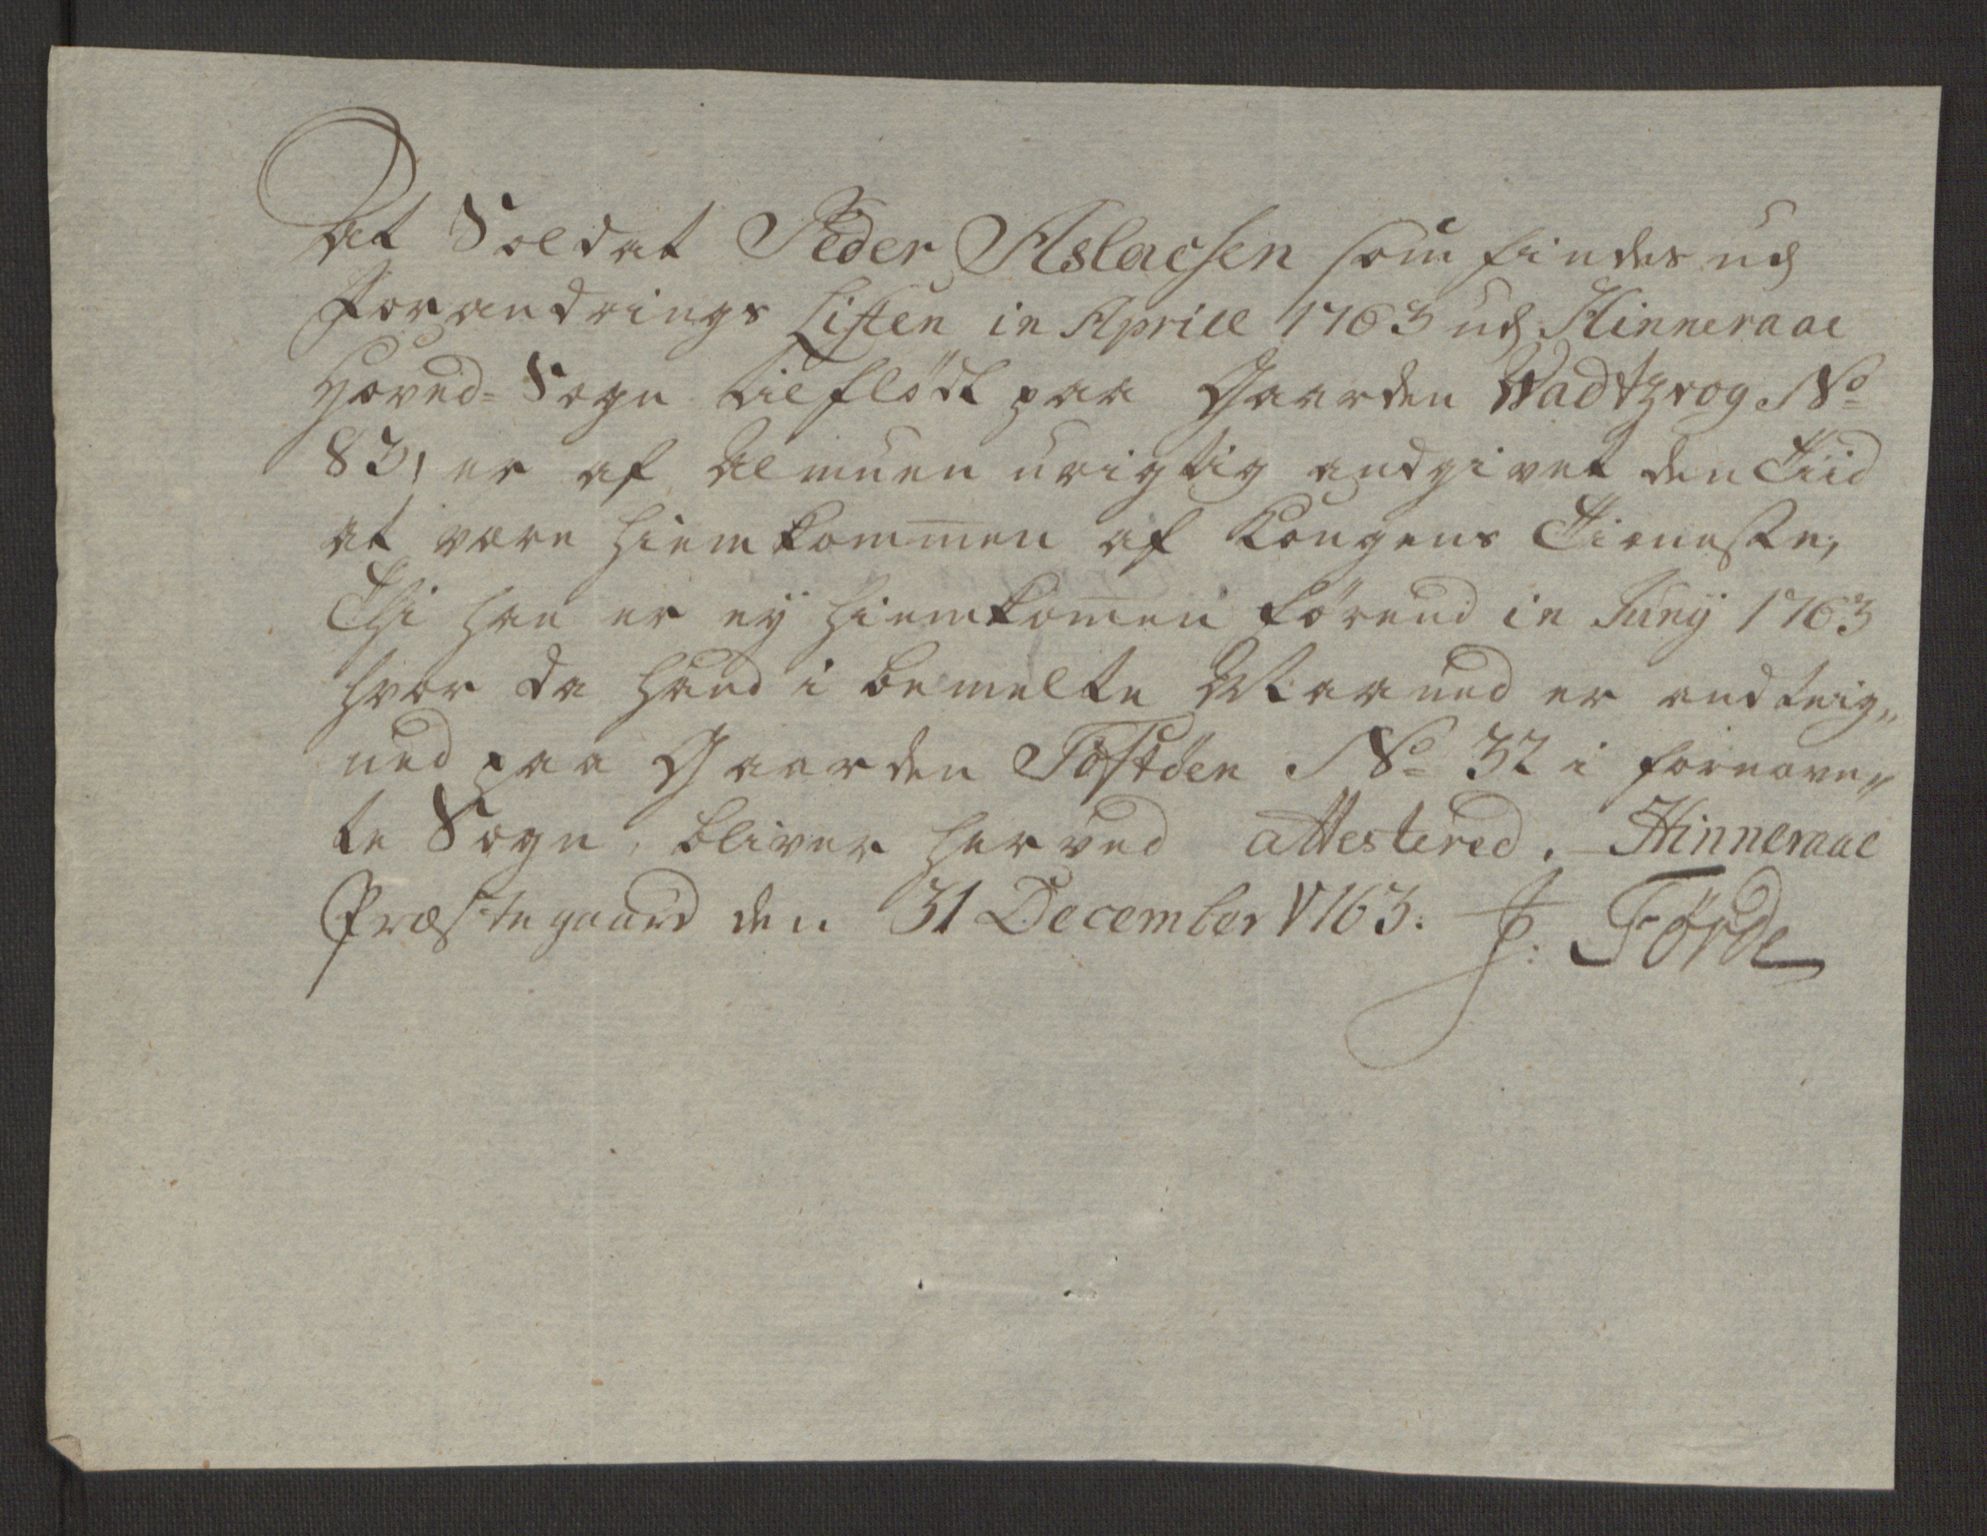 At Soldat Peder Aslacsen som findes udj
Forandrings Listen in Aprill 1763 udj Hinneraae
Hoved-Sogn tilflödt paa Gaarden Wadtzrog No
83, er af Almuen urigtig andgivet den Tiid
at være hiemkommen af Kongens Tieneste,
Thi han er ey hiemkommen förend in Junij 1763
hvor da hand i bemelte Maaned er andteig„
ned paa Gaarden Tostöen No 32 i fornævn„
te Sogn, bliver herved attestered. Hinneraae
Præstegaard den 31 December 1763. J: Förde